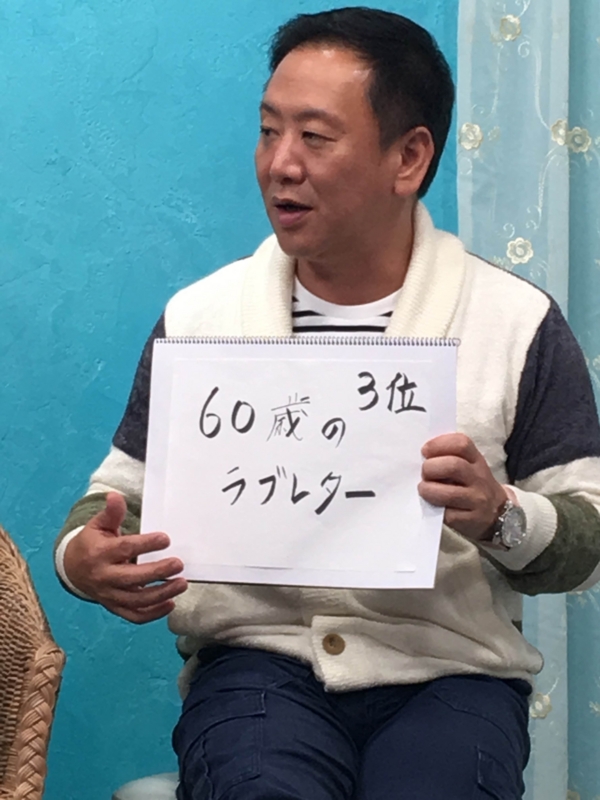 3位
60歳の
ラブレター